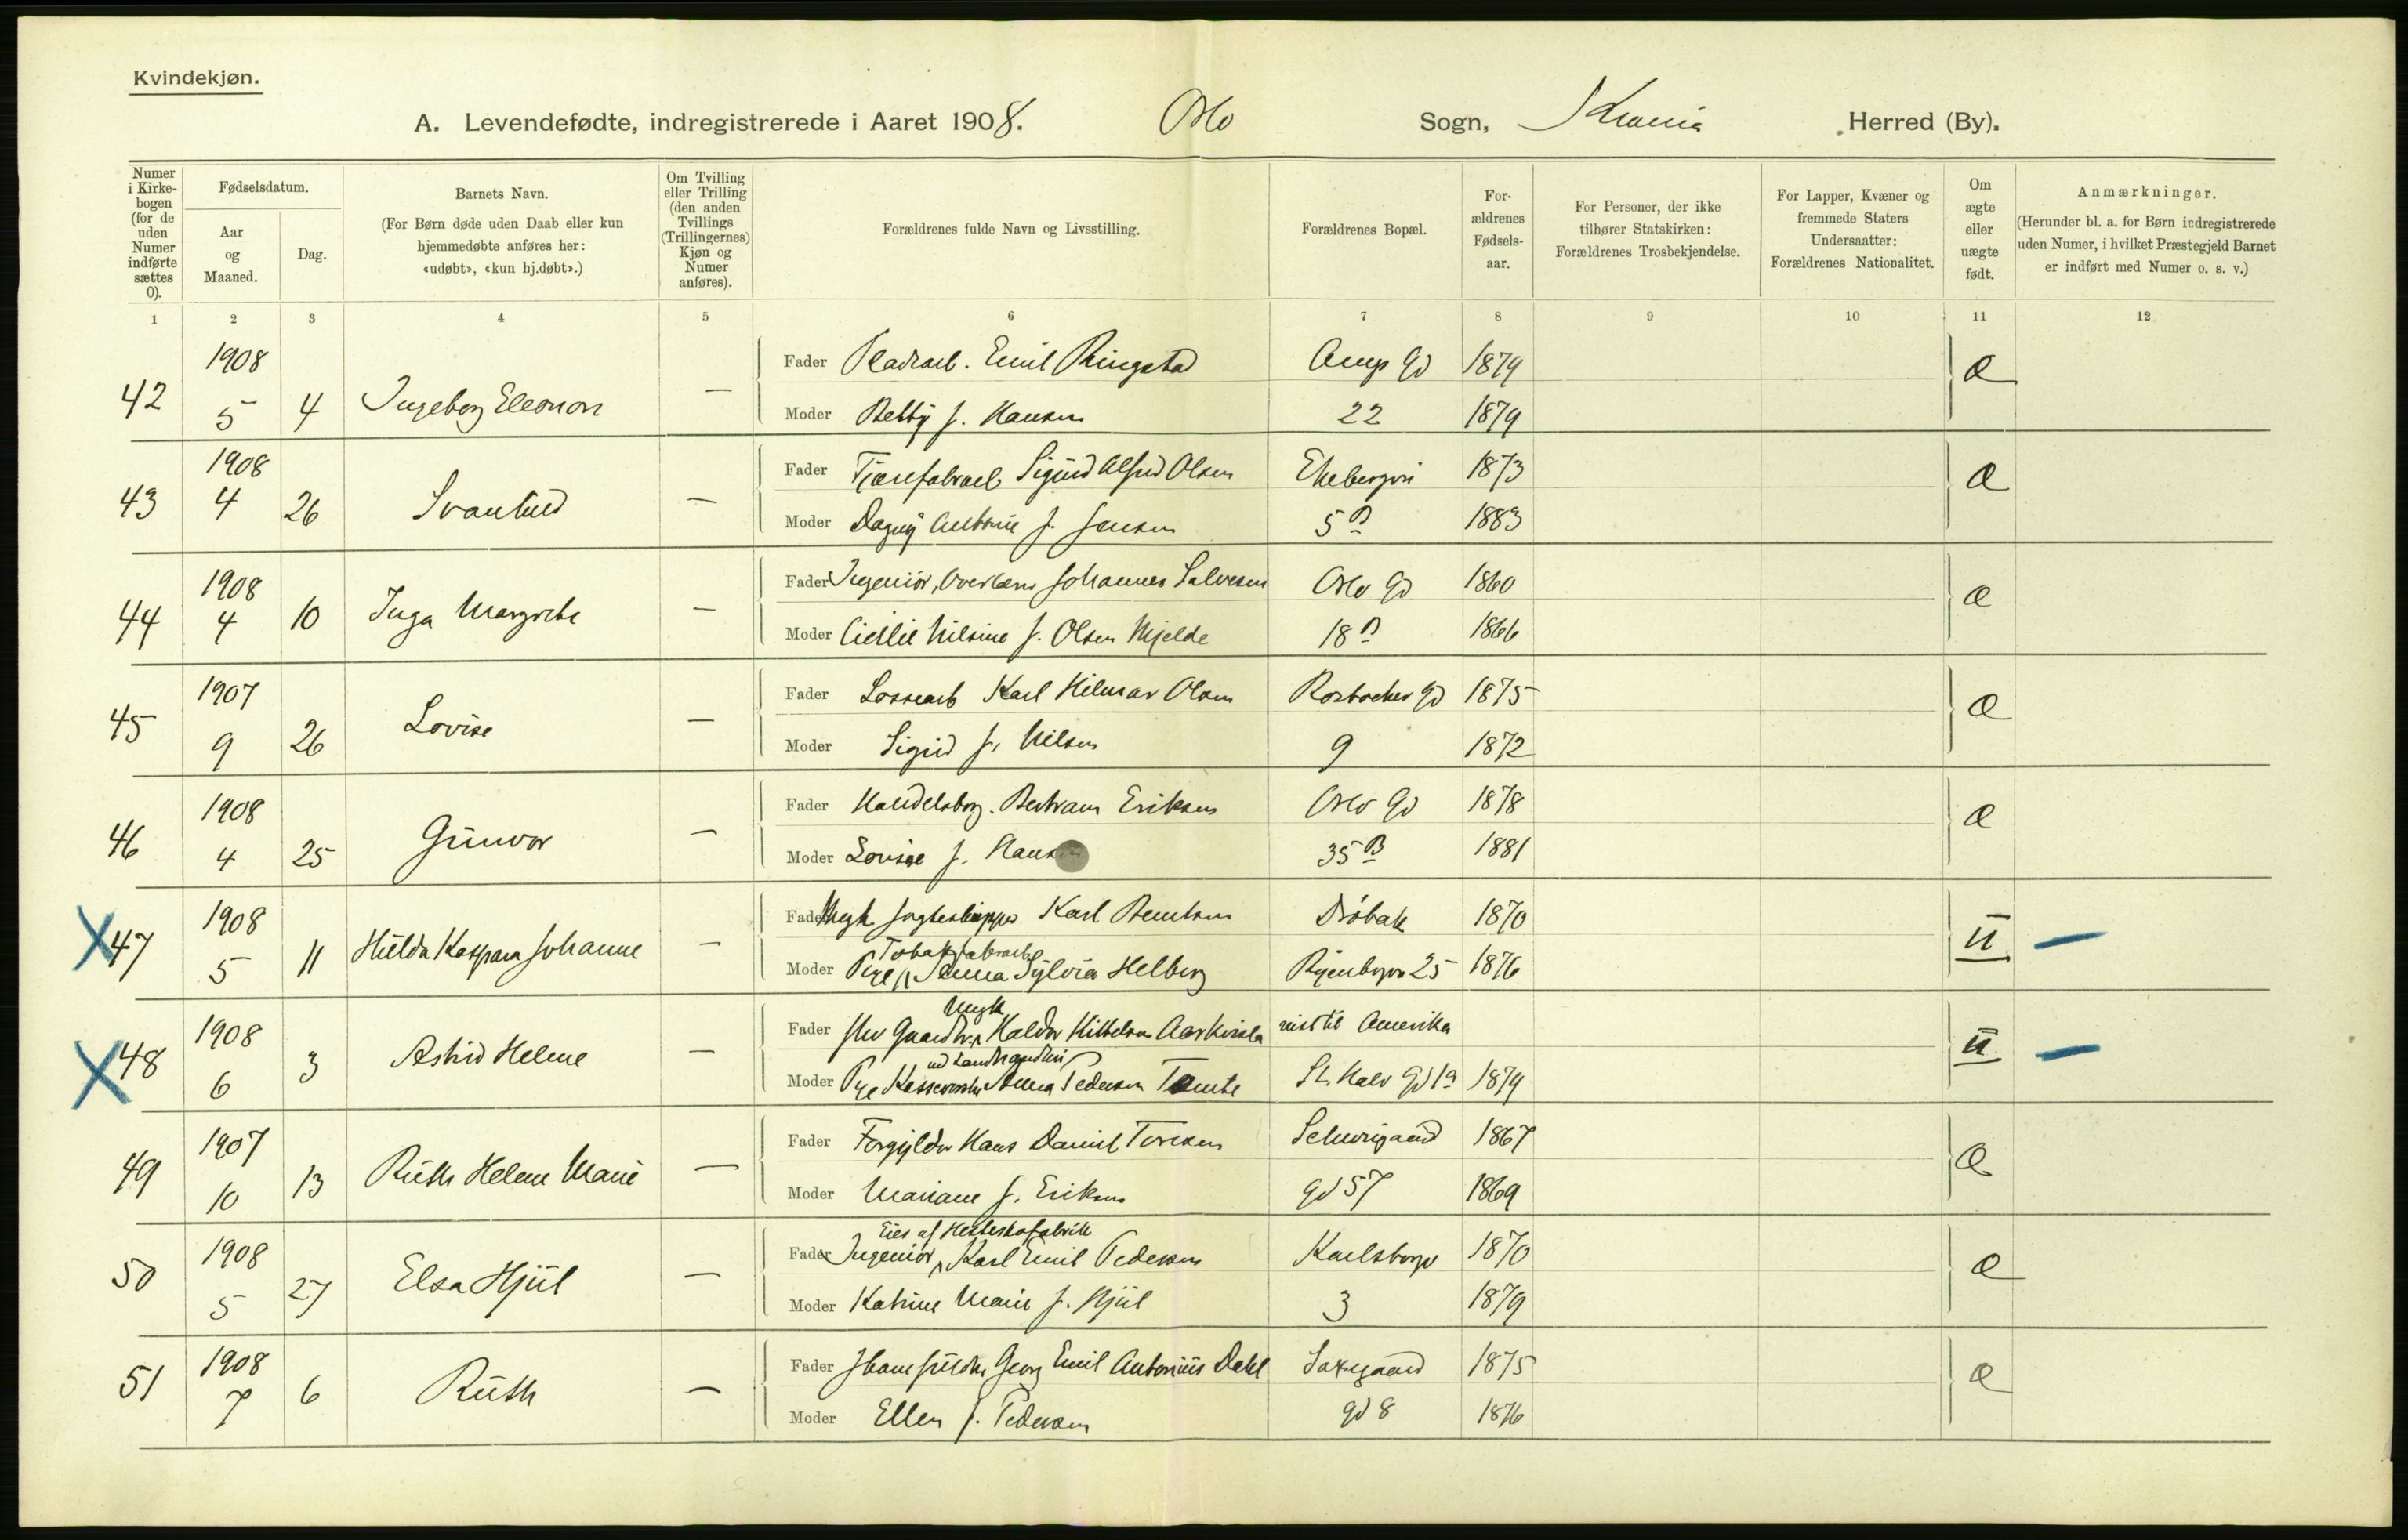 Kvindekjøn.
A. Levendefødte, indregistrerede i Aaret 1908. Oslo Sogn, Krania Herred (By).
Numer i Kirkebogen (for de uden Numer indførte sættes 0).
Fødselsdatum.
Aar og Maaned.
Dag.
Barnets Navn.
(For Børn døde uden Daab eller kun hjemmedøbte anføres her: «udøbt», «kun hj.døbt».)
Om Tvilling eller Trilling (den anden Tvillings (Trillingernes) Kjøn og Numer anføres).
Forældrenes fulde Navn og Livsstilling.
Forældrenes Bopæl.
Forældrenes Fødselsaar.
For Personer, der ikke tilhører Statskirken: Forældrenes Trosbekjendelse.
For Lapper, Kvæner og fremmede Staters Undersaatter: Forældrenes Nationalitet.
Om ægte eller uægte født.
Anmærkninger.
(Herunder bl. a. for Børn indregistrerede uden Numer, i hvilket Præstegjeld Barnet er indført med Numer o. s. v.)
1 2 3 4 5 6 7 8 9 10 11 12
1908 Fader Emil Ringstad Gd 1879 æ
42 5 4 Ingeborg Eleonore — Moder Betty f. Hansen 22 1879
1908 Fader Sigurd Alfred Olsen Ekebergvei 1873 æ
43 4 26 Svanhild — Moder Dagny Antonie f. Jensen 5 B 1883
1908 Fader Ingeniör, Johannes Salvesen Oslo Gd 1860 æ
44 4 10 Inga Margrete — Moder Nilsine f. Olsen Mjelde 18 B 1866
1907 Fader Lossearb Karl Hilmar Olsen Rosbacker Gd 1875 æ
45 9 26 Lovise — Moder Sigrid f. Nilsen 9 1872
1908 Fader Handelsborg. Bertram Eriksen Oslo Gd 1878 æ
46 4 25 Gunvor — Moder Lovise f. Hansen 35 B 1881
1908 Fader Ungk Karl Berntsen Dröbak 1870 u —
X 47 5 11 Hulda Kaspara Johanne — Tobaksfabrarb
Moder Pige Anna Sylvia Helberg Ryenbergv 25 1876
1908 Ungk
Fader Gaardbr. Haldor Kittelsen Aarkvisla reist til Amerika u —
X 48 6 3 Astrid Helene — ved Landhandleri
Moder Pige Anna Pedersen Tomte St. Halv Gd 1a 1879
1907 Fader Forgylder Hans Daniel Toresen Schweigaard 1867 æ
49 10 13 Ruth Helene Marie — Moder Mariane f. Eriksen gd 57 1869
Eier af Hesteskofabrik
1908 Fader Ingeniör, Karl Emil Pedersen Karlsborgv 1870 æ
50 5 27 Elsa Hjul — Moder Katrine Marie f. Hjul 3 1879
1908 Fader Georg Emil Antonius Dahl Saxegaard 1875 æ
51 7 6 Ruth — Moder Ellen f. Pedersen gd 8 1876